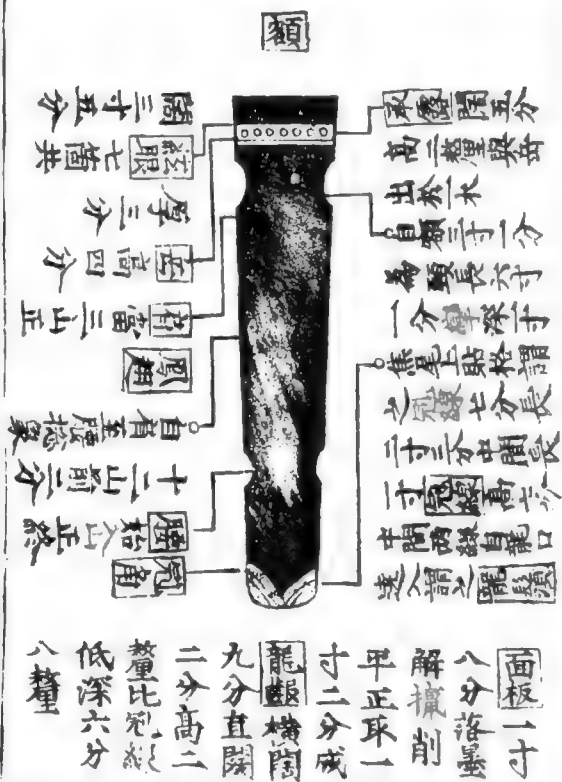 額
承露闊五分
高二釐與岳
出於一木
自額三寸一分
為項長六寸
一分深一寸
焦尾上貼格謂
之冠線七分長
二寸二分中間長
一寸冠線高二分
中間兩線自龍口
達人謂之龍鬚
絃眼七箇共
闊二寸五分
岳高四分
厚三分
肩當三山正
鳳翅
自肩至腰
十二山前二分
腰八山正
冠角
面板一寸
八分落墨
解削
平正取一
寸二分成
龍齦橫闊
九分直闊
二分高二
釐比冠
低深六分
八釐